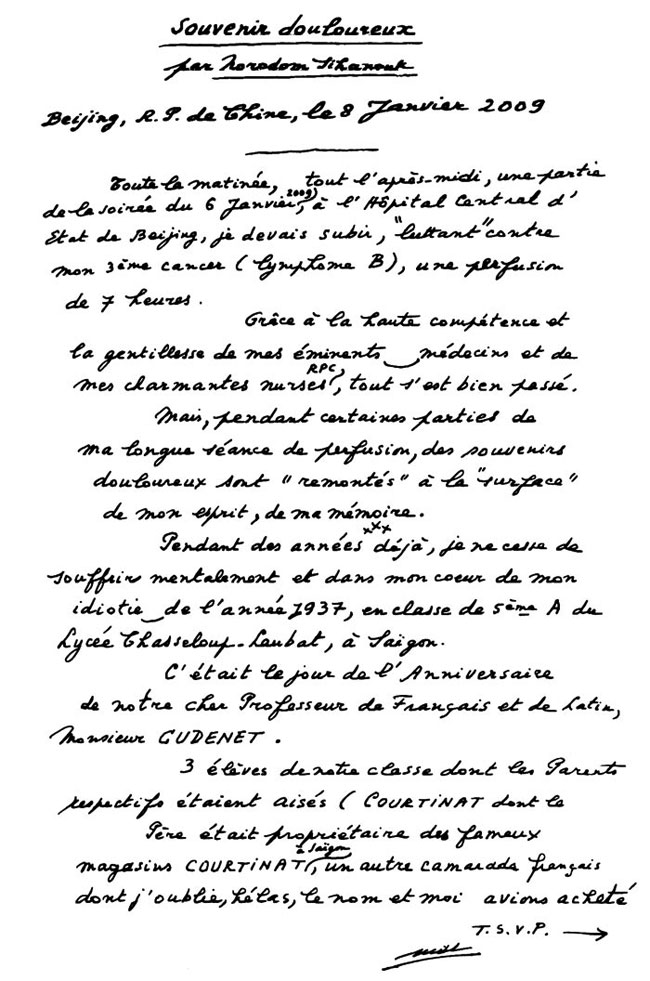 Souvenir douloureux
par Norodom Sihanouk
Beijing, R.P. de Chine, le 8 Janvier 2009
Toute la matinée, tout l'après-midi, une partie
de la soirée du 6 Janvier (2009), à l'Hôpital Central d'
Etat de Beijing, je devais subir, "luttant" contre
mon 3ème cancer (lymphome B), une perfusion
de 7 heures.
Grâce à la haute compétence et
la gentillesse de mes éminents médecins et de
mes charmantes nurses RPC, tout s'est bien passé.
Mais, pendant certaines parties de
ma longue séance de perfusion, des souvenirs
douloureux sont "remontés" à la "surface"
de mon esprit, de ma mémoire.
xxx
Pendant des années déjà, je ne cesse de
souffrir mentalement et dans mon coeur de mon
idiotie de l'année 1937, en classe de 5ème A du
Lycée Chasseloup-Laubat, à Saïgon.
C'était le jour de l'Anniversaire
de notre cher Professeur de Français et de Latin,
Monsieur GUDENET.
3 élèves de notre classe dont les Parents
respectifs étaient aisés (COURTINAT dont le
Père était propriétaire des fameux
magasins COURTINAT à Saïgon), un autre camarade français
dont j'oublie, hélas, le nom et moi avions acheté
T.S.V.P. →